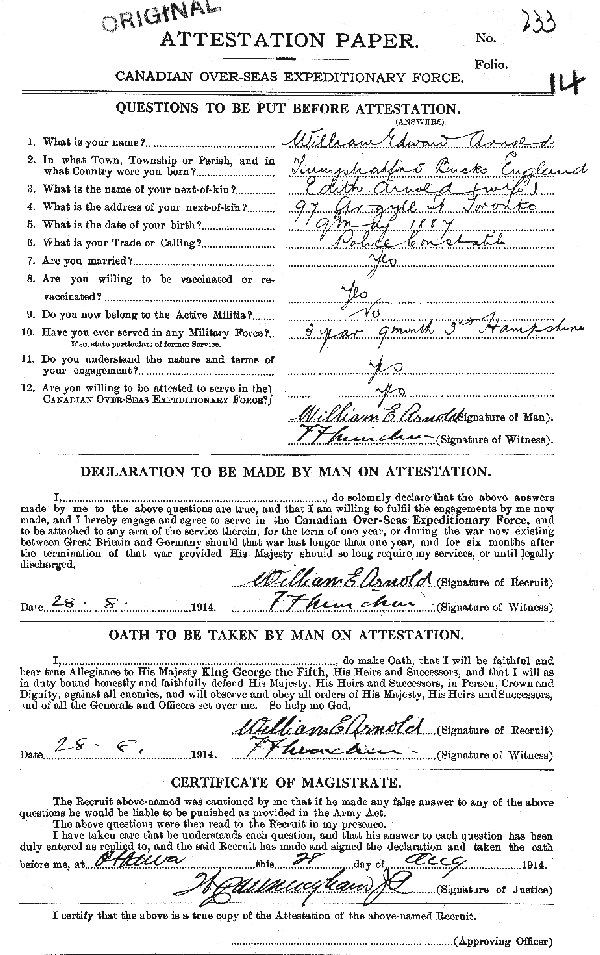 ORIGINAL
No. 233
ATTESTATION PAPER.
Folio.
CANADIAN OVER-SEAS EXPEDITIONARY FORCE.
14
QUESTIONS TO BE PUT BEFORE ATTESTATION.
(ANSWERS)
1. What is your name? William Edward Arnold
2. In what Town, Township or Parish, and in
what Country were you born? Bucks England
3. What is the name of your next-of-kin? Edith Arnold (wife)
4. What is the address of your next-of-kin? 97 Argyll St Toronto
5. What is the date of your birth? 9 May 1887
6. What is your Trade or Calling? Police Constable
7. Are you married? Yes
8. Are you willing to be vaccinated or re-
vaccinated? Yes
9. Do you now belong to the Active Militia? No
10. Have you ever served in any Military Force? 3 year 9 month 3rd Hampshire
If so, state particulars of former Service.
11. Do you understand the nature and terms of
your engagement? Yes
12. Are you willing to be attested to serve in the
CANADIAN OVER-SEAS EXPEDITIONARY FORCE? Yes
William E Arnold (Signature of Man).
(Signature of Witness).
DECLARATION TO BE MADE BY MAN ON ATTESTATION.
I, , do solemnly declare that the above answers
made by me to the above questions are true, and that I am willing to fulfil the engagements by me now
made, and I hereby engage and agree to serve in the Canadian Over-Seas Expeditionary Force, and
to be attached to any arm of the service therein, for the term of one year, or during the war now existing
between Great Britain and Germany should that war last longer than one year, and for six months after
the termination of that war provided His Majesty should so long require my services, or until legally
discharged.
William E Arnold (Signature of Recruit)
Date 28 - 8 - 1914. (Signature of Witness)
OATH TO BE TAKEN BY MAN ON ATTESTATION.
I, , do make Oath, that I will be faithful and
bear true Allegiance to His Majesty King George the Fifth, His Heirs and Successors, and that I will as
in duty bound honestly and faithfully defend His Majesty, His Heirs and Successors, in Person, Crown and
Dignity, against all enemies, and will observe and obey all orders of His Majesty, His Heirs and Successors,
and of all the Generals and Officers set over me. So help me God.
William E Arnold (Signature of Recruit)
Date 28 - 8. 1914. (Signature of Witness)
CERTIFICATE OF MAGISTRATE.
The Recruit above-named was cautioned by me that if he made any false answer to any of the above
questions he would be liable to be punished as provided in the Army Act.
The above questions were then read to the Recruit in my presence.
I have taken care that he understands each question, and that his answer to each question has been
duly entered as replied to, and the said Recruit has made and signed the declaration and taken the oath
before me, at Ottawa this 28 day of Aug 1914.
Cunningham JP (Signature of Justice)
I certify that the above is a true copy of the Attestation of the above-named Recruit.
(Approving Officer)